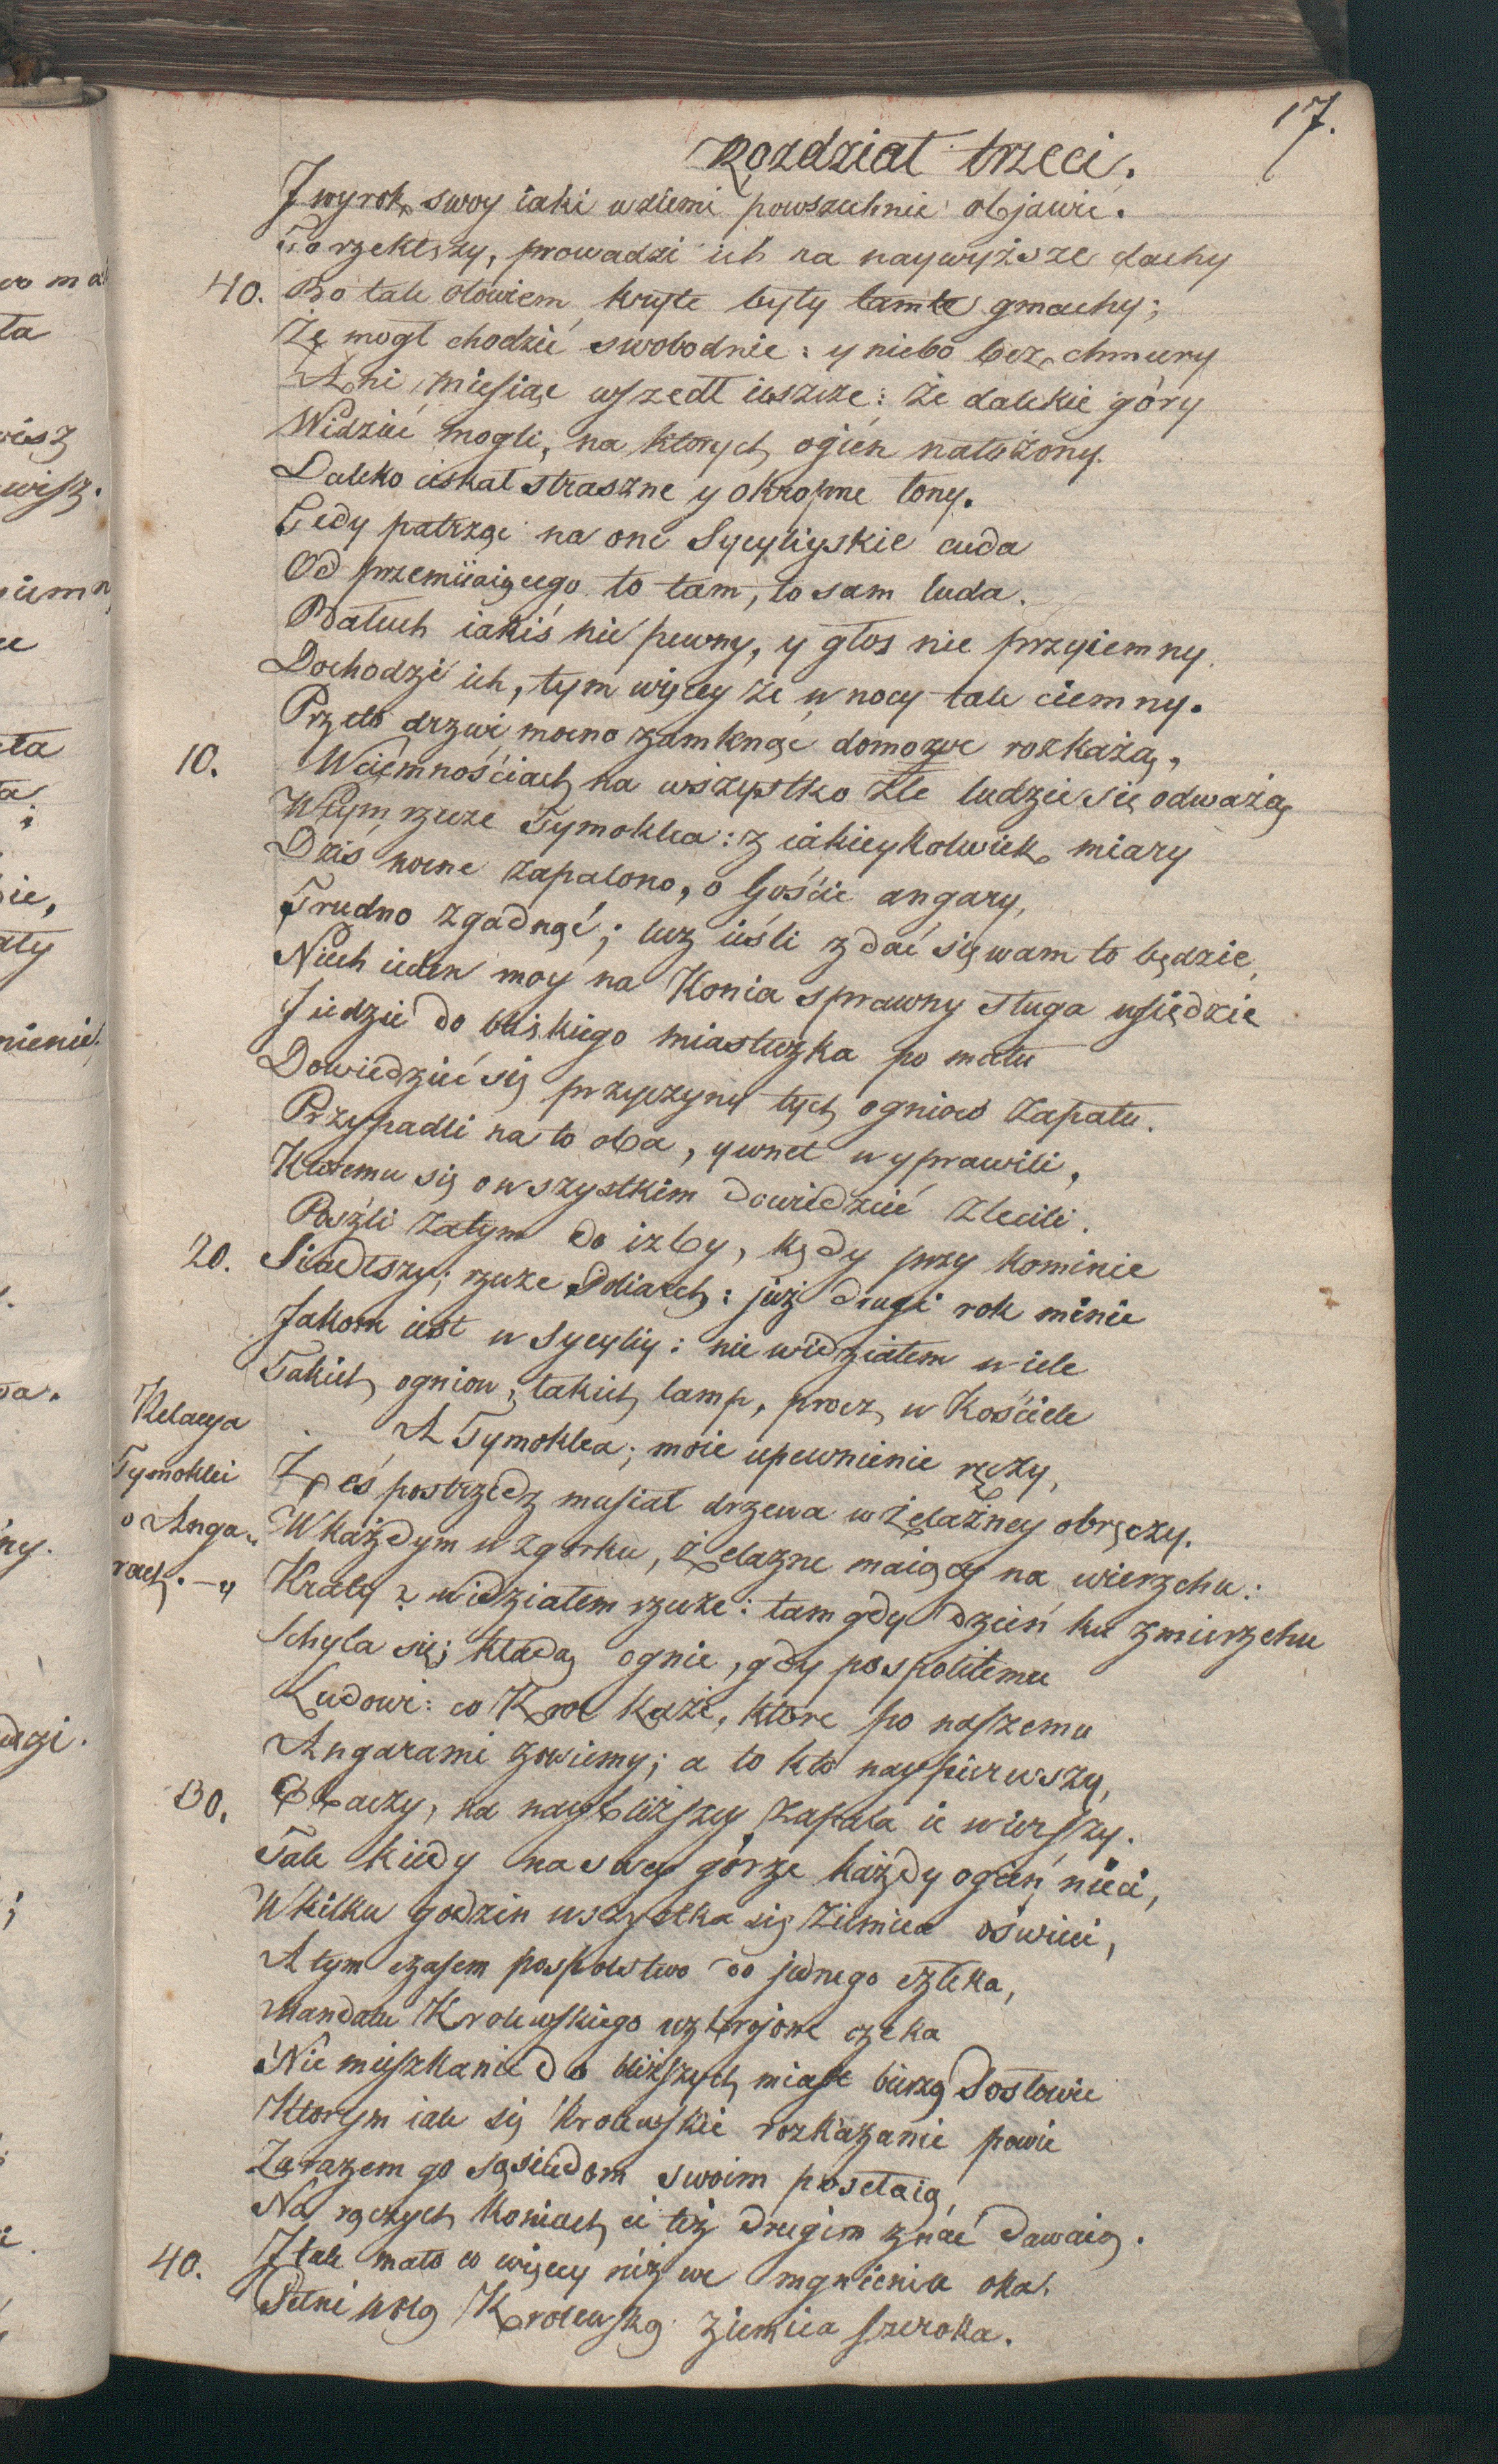 17.
Rozdział trzeci.
J wyrok swoy iaki w ziemi powszechnie objawić.
To rzekłszy, prowadzi ich na naywyższe dachy
40. Bo tak ołowiem kryte były tamte gmachy;
Że mogł chodzić swobodnie: y niebo bez chmury
Ani miesiąc wszedł ieszcze: że dalekie góry
Widzieć mogli, na ktorych ogień nałożony.
Daleko ciskał straszne y okropne łony.
Tedy patrząc na one Sycyliyskie cuda
Od przemiiaiącego to tam, to sam luda.
Bałuch iakiś nie pewny, y głos nie przyiemny.
Dochodzi ich, tym więcey że w nocy tak ciemny.
Przeto drzwi mocno zamknąć domowe rozkażą,
10. W ciemnościach na wszystko złe ludzie się odważą
W tym rzecze Tymoklea: z iakieykolwiek miary
Dziś nocne zapalono, o Goście angary,
Trudno zgadnąć; lecz ieśli zdać się wam to będzie,
Niech ieden moy na Konia sprawny sługa usiędzie
J iedzie do bliskiego miasteczka po mału
Dowiedzieć się przyczyny tych ogniow zapału.
Przypadli na to oba, y wnet wyprawili,
Ktoremu się o wszystkim dowiedzieć zlecili.
Poszli zatym do izby, kędy przy kominie
20. Siadłszy; rzecze Poliarch: już drugi rok minie
Jakom iest w Sycyliy: nie widziałem wiele
Takich ogniow, takich lamp, procz w Kościele
A Tymoklea; moie upewnienie ręczy,
Relacya
Tymoklei
o Anga-
rach.
Żeś postrzedz musiał drzewa w żelazney obręczy.
W każdym wzgorku, żelazne maiący na wierzchu:
Kraty? widziałem rzecze: tam gdy dzień ku zmierzchu
Schyla się; kładą ognie, gdy pospolitemu
Ludowi: co Krol każe, ktore po naszemu
Angarami zowiemy; a to kto naypierwszy,
30. Obaczy, na naybliższey zapala ie wierszy.
Tak kiedy na swey górze każdy ogień nieci,
W kilku godzin wszystka się Ziemica oświeci,
A tym czasem pospolstwo do jednego człeka,
Mandatu Krolewskiego uzbrojone czeka
Nie mieszkanie do bliższych miast bieżą Posłowie
Ktorym iak się Krolewskie rozkazanie powie
Zarazem go sąsiedom swoim posełaią,
Na rączych Koniach, ci też drugim znać dawaią.
40. J tak mało co więcey niż we mgnieniu oka.
Pełni wolą Krolewską ziemica szeroka.